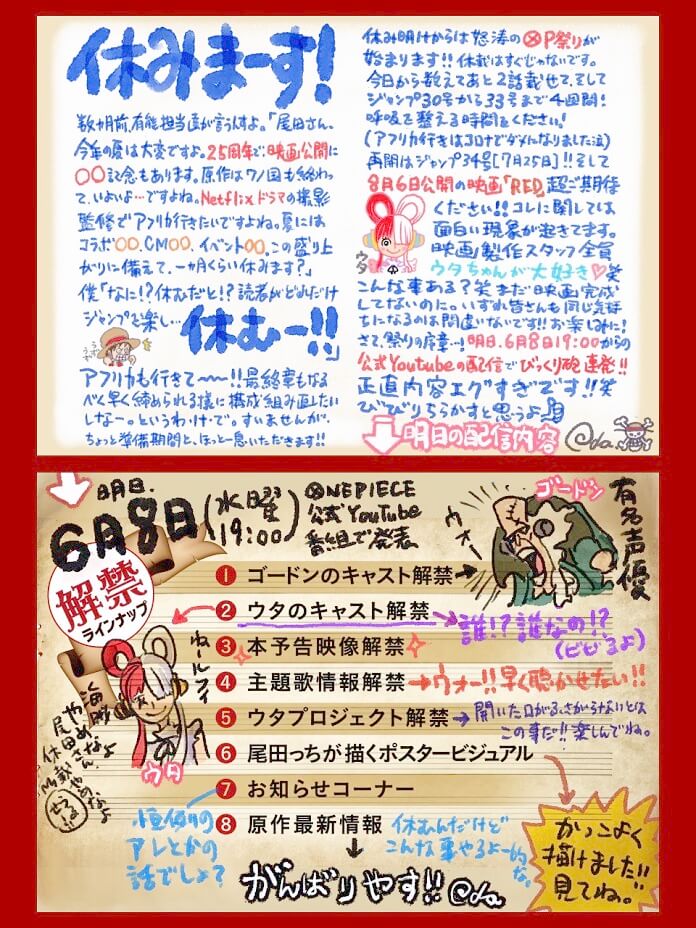 休みまーす!
数ヵ月前、有能担当達が言うんすよ。「尾田さん、
今年の夏は大変ですよ。25周年で、映画公開に
〇〇記念もあります。原作はワノ国も終わっ
て、いよいよ…ですよね。Netflixドラマの撮影
監修でアフリカ行きたいですよね。夏には
コラボ〇〇、CM〇〇、イベント〇〇、この盛り上
がりに備えて、一ヵ月くらい休みます?」
僕「なに!?休むだと!?読者がどれだけ
ジャンプを楽し…休むー!!」
アフリカも行きて〜〜!!最終章もなる
べく早く締められる様に構成組み直したい
しなー。というわ・け・で。すいませんが、
ちょっと準備期間と、ほっと一息いただきます!!
休み明けからは怒涛のOP祭りが
始まります!!休載はすぐじゃないです。
今日から数えてあと2話載せて、そして
ジャンプ30号から33号まで4週間!
呼吸を整える時間をください!
(アフリカ行きはコロナでダメになりました泣)
再開はジャンプ34号[7月25日]!!そして
8月6日公開の映画「RED」超ご期待
ください!!コレに関しては
面白い現象が起きてます。
映画製作スタッフ全員
ウタちゃんが大好き♡笑
ウタ
こんな事ある?笑まだ映画完成
してないのに。いずれ皆さんも同じ気持
ちになるのは間違いないです!!お楽しみに!
さて、祭りの序章…!明日、6月8日19:00からの
公式Youtubeの配信でびっくり砲連発!!
正直内容エグすぎです!!笑
びびりちらかすと思うよ
明日の配信内容
明日、
6月8日(水曜 19:00)
ONEPIECE
公式YouTube
番組で発表
ゴードン
有名声優
ウォー
解禁
ラインナップ
1 ゴードンのキャスト解禁
2 ウタのキャスト解禁
誰!?誰なの!?
(ビビるよ)
3 本予告映像解禁
4 主題歌情報解禁→ウォー!!早く聴かせたい!!
5 ウタプロジェクト解禁→開いた口がふさがらないとは
この事だ!!楽しんでね。
6 尾田っちが描くポスタービジュアル
かっこよく
描けました!!
見てね。
7 お知らせコーナー
恒例の
アレとかの
話でしょ?
8 原作最新情報
休むんだけど
こんな事やるよー的な。
がんばりやす!!
ウタ